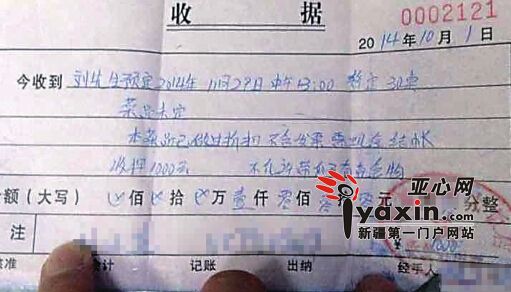 收 据
0002121
2014年10月1日
今收到 刘先生预定2014年11月29日中午13:00 暂定30桌
菜品未定
本菜品已做过折扣 不含发票 需现金结帐
收押1000元 不允许带
额(大写) 佰 拾 万壹仟零佰 元 分整
亚心网
iyaxin.com
新疆第一门户网站
¥ 1000
注
核准 会计 记账 出纳 经手人